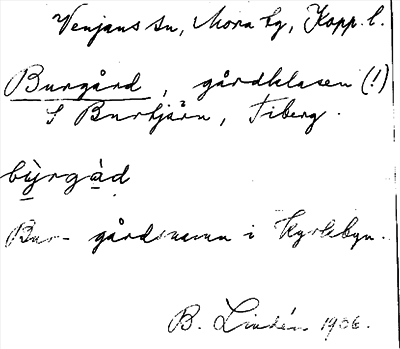 Venjans sn, Mora tg, Kopp. l.
Burgård, gårdklasen (!)
S Burtjärn, Tiberg.
bỳrgàd
Bur- gårdsnamn i Kyrkbyn.
B. Lindén 1936.